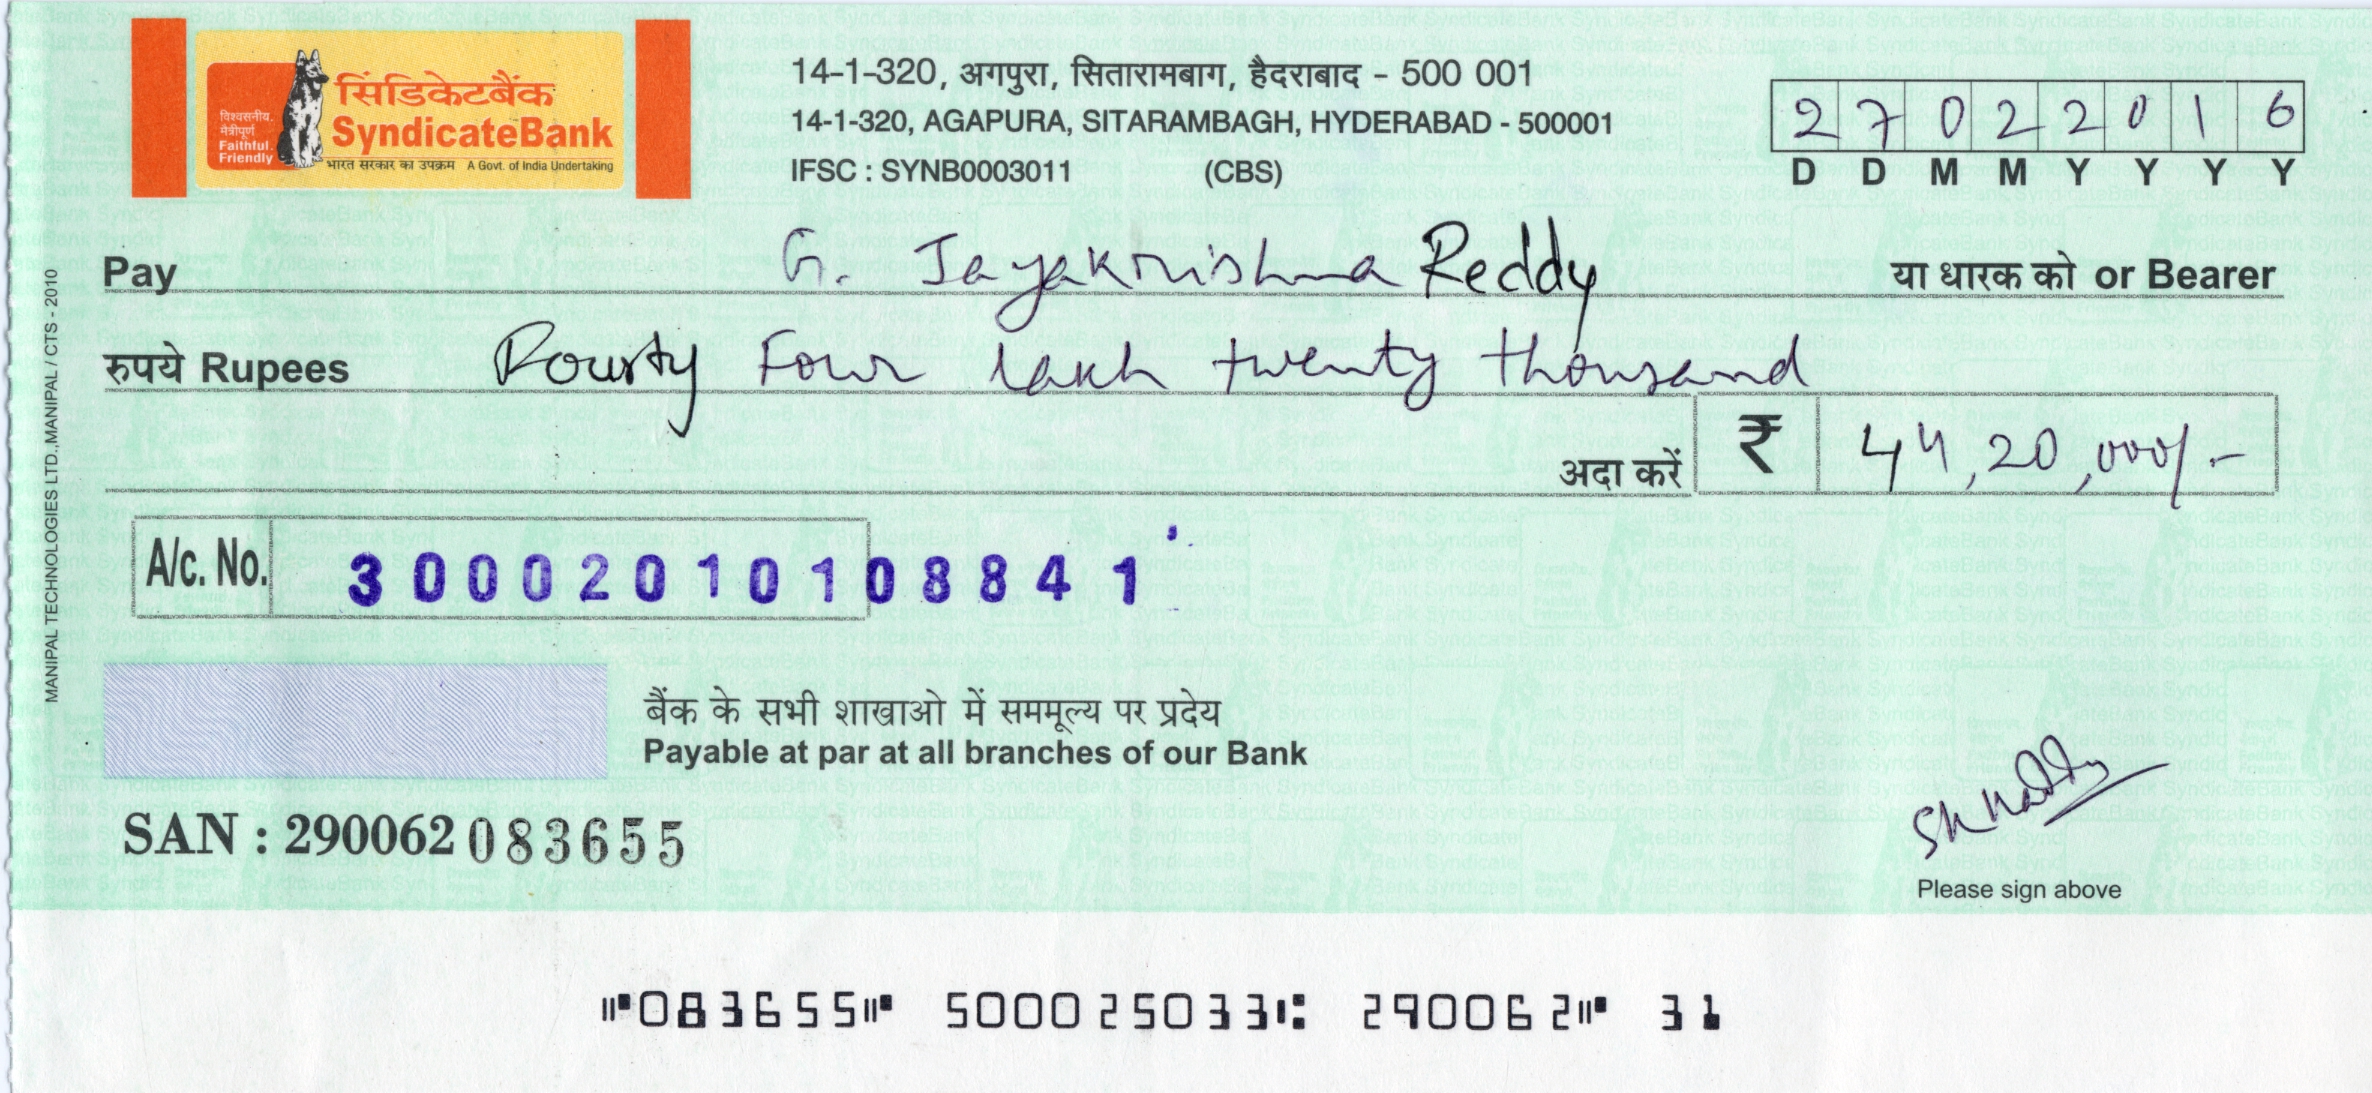 सिंडिकेटबैंक
SyndicateBank
विश्वसनीय.
मैत्रीपूर्ण
Faithful.
Friendly
भारत सरकार का उपक्रम A Govt. of India Undertaking
14-1-320, अगपुरा, सितारामबाग, हैदराबाद - 500 001
14-1-320, AGAPURA, SITARAMBAGH, HYDERABAD - 500001
IFSC : SYNB0003011 (CBS)
2 7 0 2 2 0 1 6
D D M M Y Y Y Y
Pay G. Jayakrishna Reddy या धारक को or Bearer
रुपये Rupees Fourty Four lakh twenty thousand
अदा करें ₹ 44,20,000/-
A/c. No. 30002010108841
बैंक के सभी शाखाओ में सममूल्य पर प्रदेय
Payable at par at all branches of our Bank
SAN : 290062 083655
Please sign above
MANIPAL TECHNOLOGIES LTD.,MANIPAL / CTS - 2010
⑈083655⑈ 500025033⑆ 290062⑈ 31